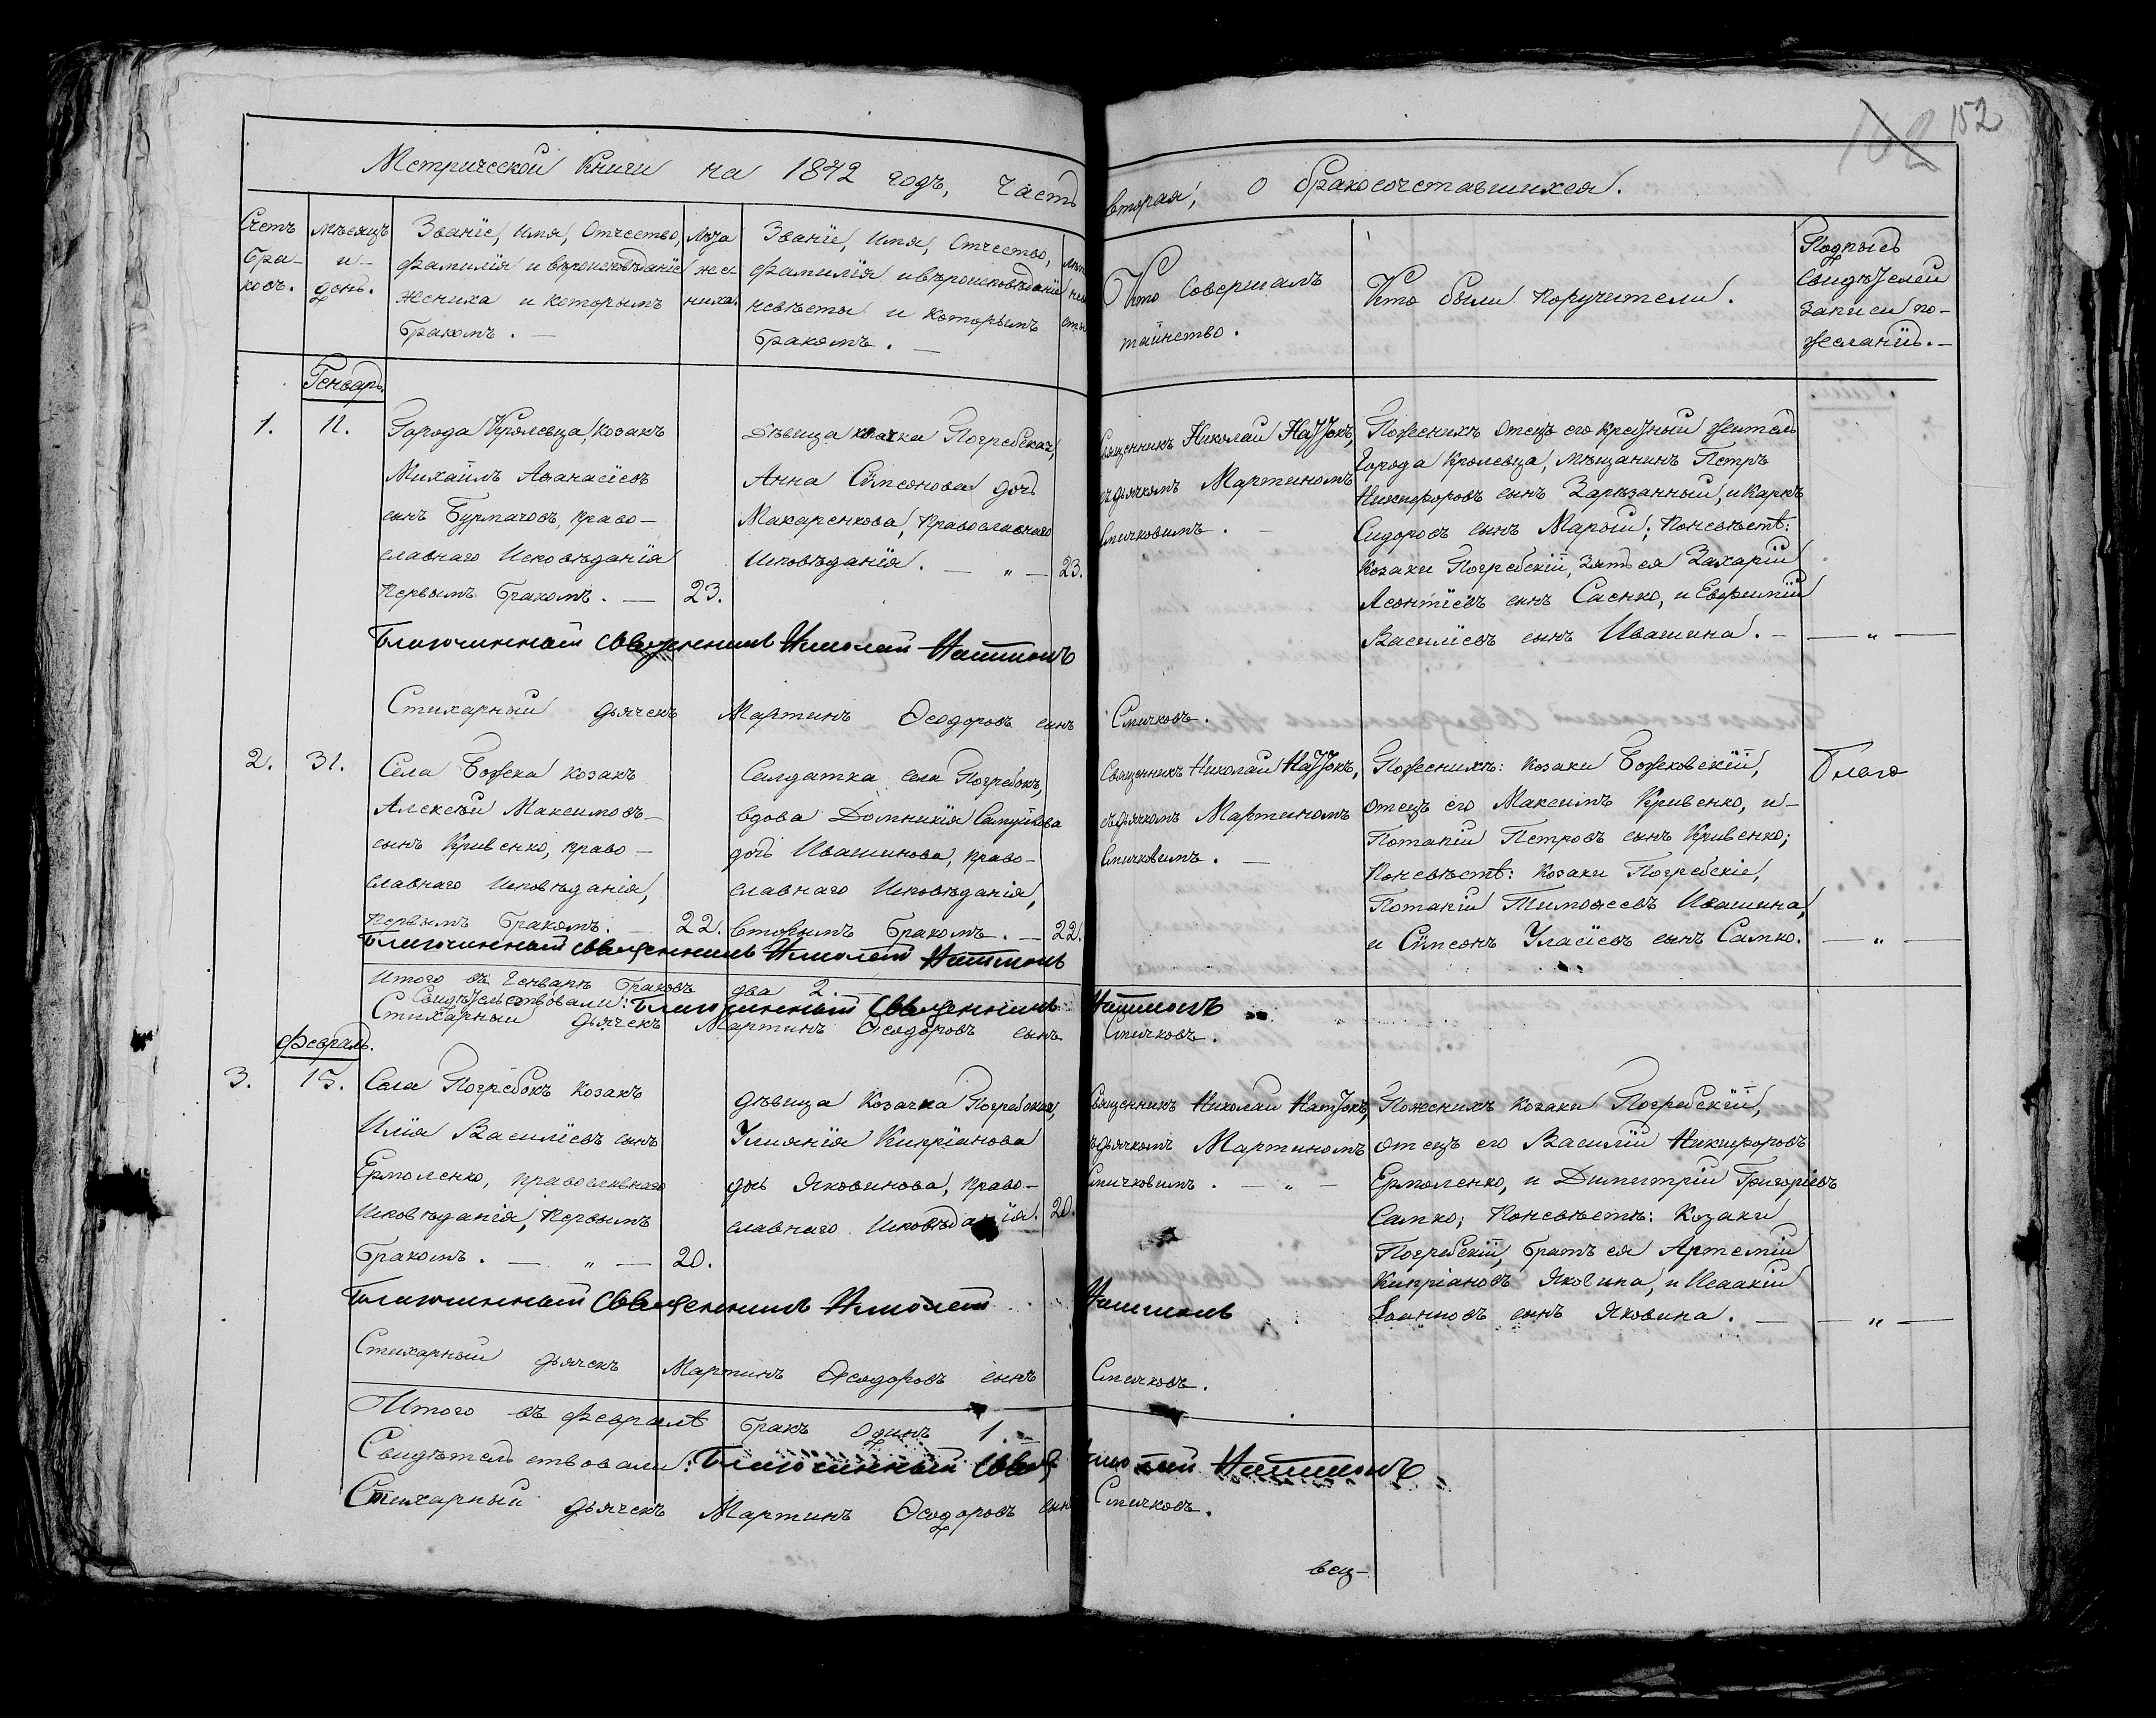 152
Метрической Книги на 1872 годъ, Часть вторая, о бракосочетавшихся.
Счетъ браковъ.
Мѣсяцъ и день.
Званіе, Имя, Отчество,
фамилія и вѣроисповѣданіе
жениха и которымъ
бракомъ. —
Лѣта
жениха.
Званіе, Имя, Отчество,
фамилія и вѣроисповѣданіе
невѣсты и которымъ
бракомъ. —
Кто Совершалъ
таинство.
Кто были поручители.
Подпись
свидѣтелей
записи по
желанію. —
Генварь
1.
11.
Города Кролевца, козакъ
Михаилъ Аѳанасіевъ
сынъ Бурмачовъ, право-
славнаго Исповѣданія
первымъ бракомъ. — 23.
Дѣвица козачка Погребская,
Анна Сѵмеонова дочь
Макаренкова, Православнаго
Исповѣданія. — „ — 23.
Священникъ Николай Натток,
съ дьячкомъ Мартиномъ
Смичковымъ. —
По женихѣ Отецъ его крестный житель
города Кролевца, мѣщанинъ Петръ
Никифоровъ сынъ Зарѣзанный, и Карпъ
Сидоровъ сынъ Марый; По невѣстѣ:
козаки Погребскій, зять ея Захарій
Леонтіевъ сынъ Саенко, и Евфимій
Василіевъ сынъ Ивашина. — — „ —
Благочинный Священникъ Николай
Стихарный дьячекъ Мартинъ Ѳеодоровъ сынъ Смичковъ.
2.
31.
Села Божека козакъ
Алексѣй Максимовъ
сынъ Кривенко, право-
славнаго Исповѣданія,
первымъ бракомъ. — 22.
Салдатка села Погребокъ,
вдова Домникія Самуйлова
дочь Ивашинова, право-
славнаго Исповѣданія,
вторымъ бракомъ. — 22.
Священникъ Николай
съ дьячкомъ Мартиномъ
Смичковымъ. —
По женихѣ: козаки Божековскій,
отецъ его Максимъ Кривенко, и
Потапій Петровъ сынъ Кривенко;
По невѣстѣ: козаки Погребскіе,
Потапій Тимоѳеевъ Ивашина,
и Сѵмеонъ Уласіевъ сынъ Сапко. — „ —
Благо
Благочинный Священникъ Николай
Итого въ Генварѣ браковъ два 2. —
Свидѣтельствовали: Благочинный Священникъ
Стихарный дьячекъ Мартинъ Ѳеодоровъ сынъ Смичковъ.
Февраль.
3.
15.
Села Погребокъ козакъ
Илія Василіевъ сынъ
Ермоленко, православнаго
Исповѣданія, Первымъ
бракомъ. — „ — 20.
дѣвица Козачка Погребская,
Улиянія Кипріанова
дочь Яковинова, право-
славнаго Исповѣданія. 20.
Священникъ Николай
съ дьячкомъ Мартиномъ
Смичковымъ. — „ —
По женихѣ козаки Погребскій,
отецъ его Василій Никифоровъ
Ермоленко, и Димитрій Григоріевъ
Сапко; По невѣстѣ: Козаки
Погребскій, братъ ея Артемій
Кипріановъ Яковина, и Исаакій
Іоанновъ сынъ Яковина. — — „ —
Благочинный Священникъ Николай
Стихарный дьячекъ Мартинъ Ѳеодоровъ сынъ Смичковъ.
Итого въ Февралѣ бракъ Одинъ 1. —
Свидѣтельствовали: Благочинный
Стихарный дьячекъ Мартинъ Ѳеодоровъ сынъ Смичковъ.